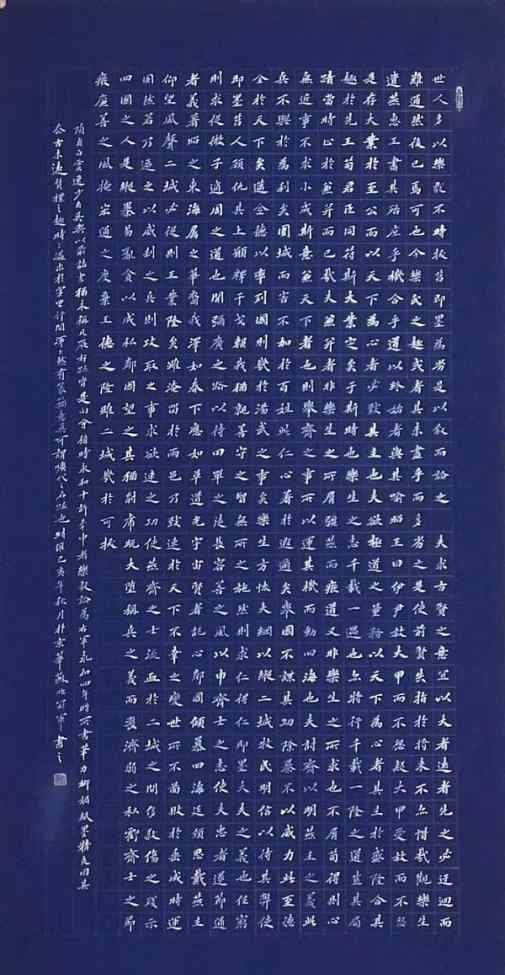 世人多以樂毅不時拔莒即墨為劣是以敘而論之 夫求古賢之意宜以大者遠者先之必迂迴而
難通然後已焉可也今樂氏之趣或者其未盡乎而多劣之是使前賢失指於將來不亦惜哉觀樂生
遺燕惠王書其殆庶乎機合乎道以終始者與其喻昭王曰伊尹放大甲而不疑大甲受放而不怨
是存大業於至公而以天下為心者必致其主也夫欲極道之量務以天下為心者其主於盛隆合其
趣於先王苟君臣同符斯大業定矣于斯時也樂生之志千載一遇也亦將行千載一隆之道豈其局
蹟當時止於兼并而已哉夫兼并者非樂生之所屑彊燕而廢道又非樂生之所求也不屑苟得則心
無近事不求小成斯意兼天下者也則舉齊之事所以運其機而動四海也夫討齊以明燕主之義此
兵不興於為利矣圍城而害不加於百姓此仁心著於遐邇矣舉國不謀其功除暴不以威力此至德
全於天下矣邁全德以率列國則幾於湯武之事矣樂生方恢大綱以縱二城牧民明信以待其弊使
即墨莒人顧仇其上願釋干戈賴我猶親善守之智無所之施然則求仁得仁即墨大夫之義也任窮
則求從微子適周之道也開彌廣之路以待田單之徒長容善之風以申齊士之志使夫忠者遂節通
者義著昭之東海屬之華裔我澤如春下應如草道光宇宙賢者託心鄰國傾慕四海延頸思戴燕主
仰望風聲二城必從則王業隆矣雖淹留於兩邑乃致速於天下不幸之變世所不圖敗於垂成時運
固然若乃逼之以威劫之以兵則攻取之事求欲速之功使燕齊之士流血於二城之間侈殺傷之殘示
四國之人是縱暴易亂貪以成私鄰國望之其猶豺虎既大墮稱兵之義而喪濟弱之仁虧齊士之節
廢廉善之風掩宏通之度棄王德之隆雖二城幾於可拔
樂毅論為右軍永和四年時所書筆力
己亥年秋月於京華 書之